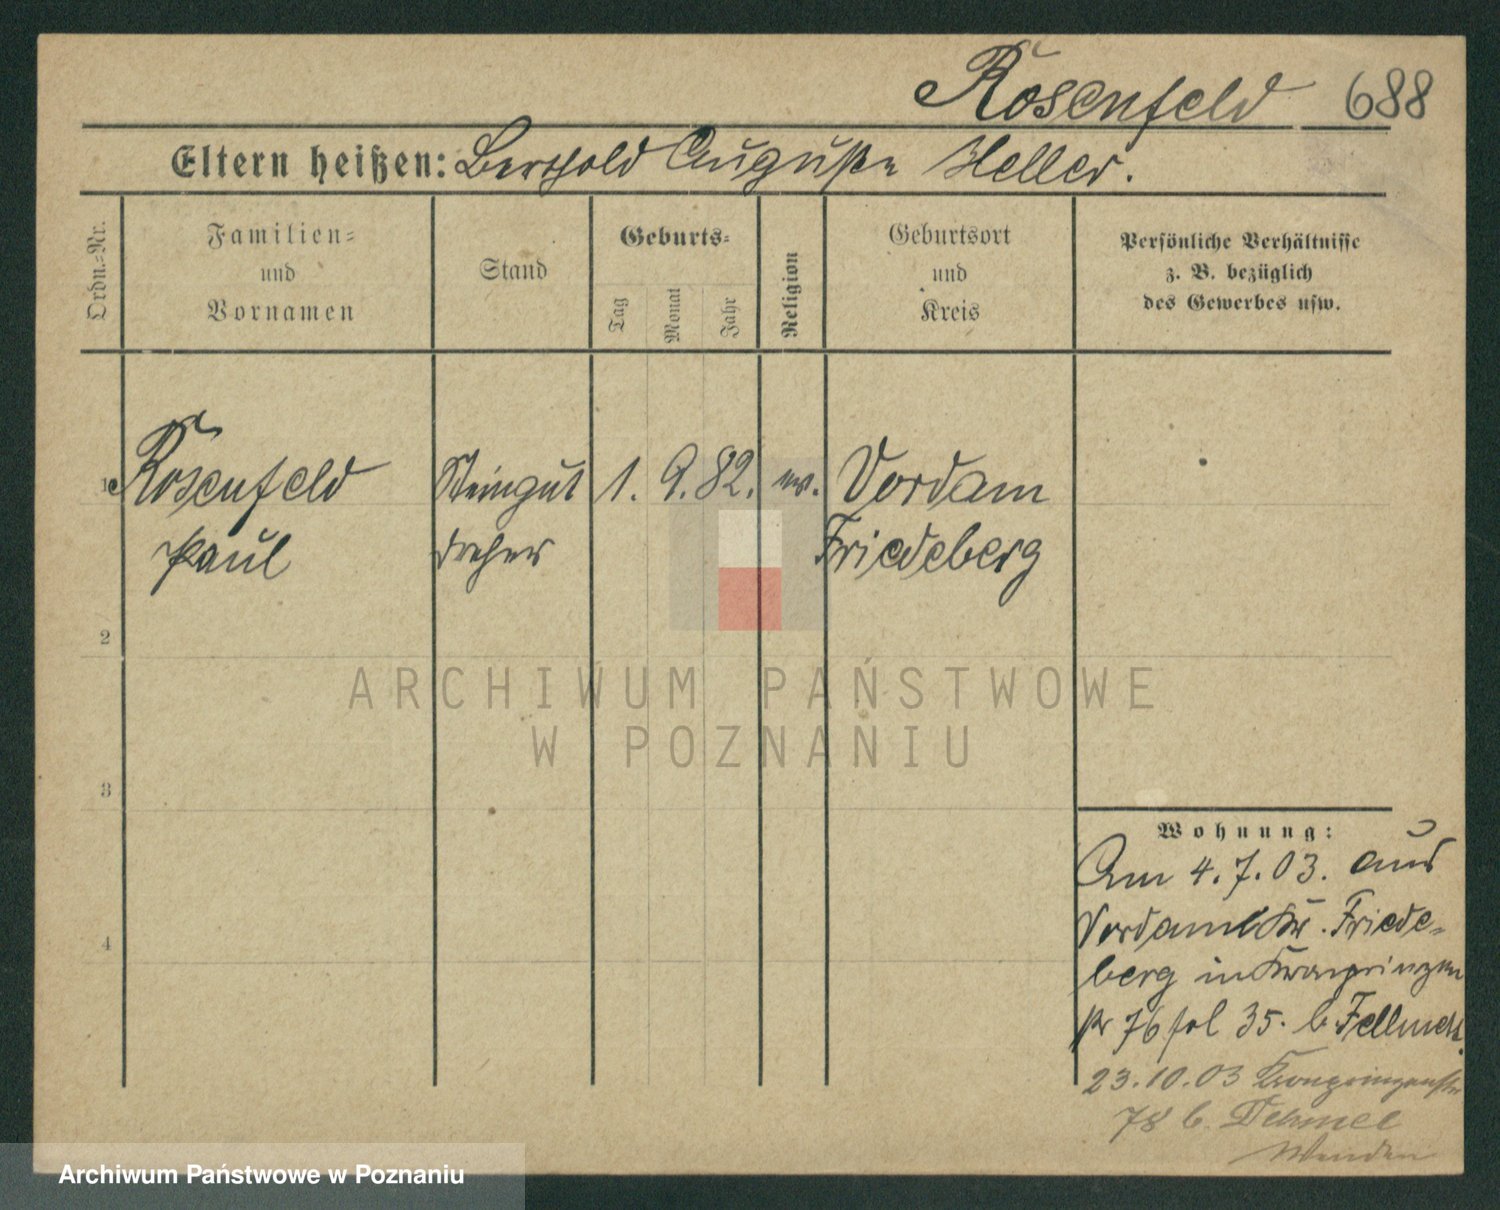 Rosenfeld 688
Eltern heißen: Berthold Auguste Heller.
Ordn.-Nr.
Familien-
und
Vornamen
Stand
Geburts-
Tag
Monat
Jahr
Religion
Geburtsort
und
Kreis
Persönliche Verhältnisse
z. B. bezüglich
des Gewerbes usw.
1 Rosenfeld Steingut 1. 9. 82. ev. Vordamm
Paul dreher Friedeberg
2
3
4
Wohnung:
Am 4. 7. 03. aus
Vordamm Kr. Friede-
berg in Kronprinzen
str 76 fol 35. b. Fellmeth.
23. 10. 03 Kronprinzenstr
78 b. Dehmel
Wenden
ARCHIWUM PAŃSTWOWE
W POZNANIU
Archiwum Państwowe w Poznaniu